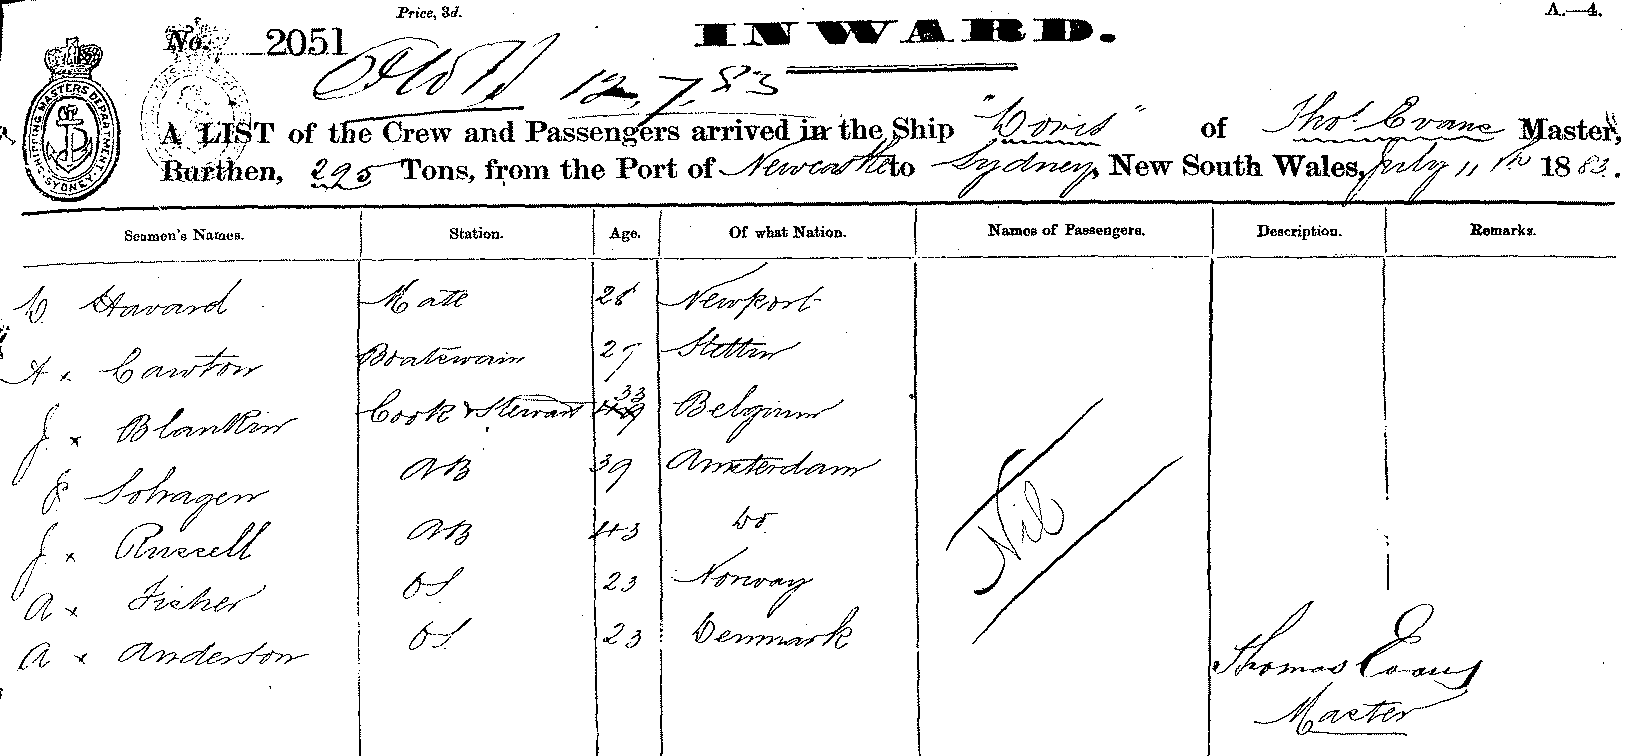 Price, 3d.
A.—4.
No. 2051
INWARD.
12.7.83
SHIPPING MASTERS DEPARTMENT SYDNEY
A LIST of the Crew and Passengers arrived in the Ship "Doris" of Thos Evans Master,
Burthen, 295 Tons, from the Port of Newcastle to Sydney, New South Wales, July 11th 1883.
Seamen's Names. Station. Age. Of what Nation. Names of Passengers. Description. Remarks.
D. Havard Mate 28 Newport
A x Cawton Boatswain 27 Stettin
J x Blankin Cook & Steward 33 Belgium
Sohagen AB 39 Amsterdam
J x Russell AB 43 Do
A x Fisher OS 23 Norway
A x Anderson OS 23 Denmark
Nil
Thomas Evans
Master